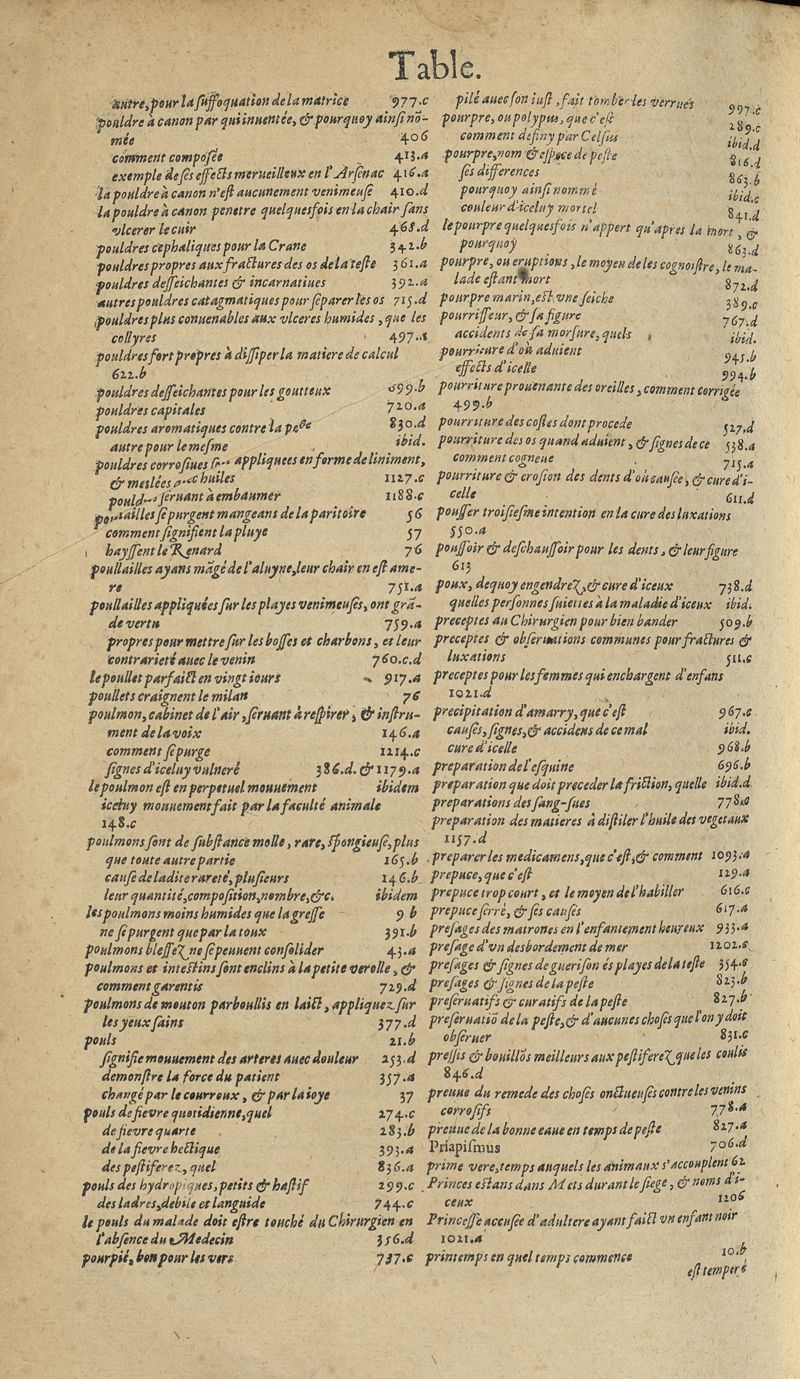 Table.
autre, pour la suffoquation de la matrice 977.c
pouldre à canon par qui inuentée, & pourquoy ainsi nō-
mée 406
comment composée 413.a
exemple de ses effects merueilleux en l'Arsenac 416.a
la pouldre à canon n'est aucunement venimeuse 410.d
la pouldre à canon penetre quelquesfois en la chair sans
vlcerer le cuir 468.d
pouldres cephaliques pour la Crane 342.b
pouldres propres aux fractures des os de la teste 361.a
pouldres desseichantes & incarnatiues 392.a
autres pouldres catagmatiques pour separer les os 715.d
pouldres plus conuenables aux vlceres humides, que les
collyres 497.a
pouldres fort propres à dissiper la matiere de calcul
622.b
pouldres desseichantes pour les goutteux 699.b
pouldres capitales 720.a
pouldres aromatiques contre la peste 830.d
autre pour le mesme ibid.
pouldres corrosiues appliquees en forme de liniment,
& meslées huiles 1127.c
seruant à embaumer 1188.c
se purgent mangeans de la paritoire 56
comment signifient la pluye 57
hayssent le Renard 76
poullailles ayans māgé de l'aluyne, leur chair en est ame-
re 751.a
poullailles appliquées sur les playes venimeuses, ont grā-
de vertu 759.a
propres pour mettre sur les bosses et charbons, et leur
contrarieté auec le venin 760.c.d
le poullet parfaict en vingt iours 917.a
poullets craignent le milan 76
poulmon, cabinet de l'air, seruant à respirer, & instru-
ment de la voix 146.a
comment se purge 1214.c
signes d'iceluy vulneré 386.d. & 1179.a
le poulmon est en perpetuel mouuement ibidem
iceluy mouuement fait par la faculté animale
148.c
poulmons sont de substance molle, rare, spongieuse, plus
que toute autre partie 165.b
cause de ladite rareté, plusieurs 146.b
leur quantité, composition, nombre, &c. ibidem
les poulmons moins humides que la gresse 9 b
ne se purgent que par la toux 391.b
poulmons blessez ne se peuuent consolider 43.a
poulmons et intestins sont enclins à la petite verolle, &
comment garentis 729.d
poulmons de mouton parboullis en laict, appliquez sur
les yeux sains 377.d
pouls 21.b
signifie mouuement des arteres auec douleur 253.d
demonstre la force du patient 357.a
changé par le courroux, & par la ioye 37
pouls de fievre quotidienne, quel 274.c
de fievre quarte 283.b
de la fievre hectique 393.a
des pestiferez, quel 836.a
pouls des hydropiques, petits & hastif 299.c
des ladres, debile et languide 744.c
le pouls du malade doit estre touché du Chirurgien en
l'absence du Medecin 356.d
pourpié, bon pour les vers 737.c
pilé auec son iust, fait tomber les verrues 997.c
pourpre, ou polypus, que c'est 289.c
comment definy par Celsus ibid.d
pourpre, nom & espece de peste 816.d
ses differences 863.b
pourquoy ainsi nommé ibid.c
couleur d'iceluy mortel 841.d
le pourpre quelquesfois n'appert qu'apres la mort, &
pourquoy 863.d
pourpre, ou eruptions, le moyen de les cognoistre, le ma-
lade estant mort 872.d
pourpre marin, est vne seiche 389.c
pourrisseur, & sa figure 767.d
accidents de sa morsure, quels ibid.
pourriture d'où aduient 945.b
effects d'icelle 994.b
pourriture prouenante des oreilles, comment corrigée
499.b
pourriture des costes dont procede 527.d
pourriture des os quand aduient, & signes de ce 538.a
comment cogneue 715.a
pourriture & erosion des dents d'où causée, & cure d'i-
celle 611.d
pousser troisiesme intention en la cure des luxations
550.a
poussoir & deschaussoir pour les dents, & leur figure
613
poux, dequoy engendrez, & cure d'iceux 738.d
quelles personnes suiettes à la maladie d'iceux ibid.
preceptes au Chirurgien pour bien bander 509.b
preceptes & obseruations communes pour fractures &
luxations 511.c
preceptes pour les femmes qui enchargent d'enfans
1021.d
precipitation d'amarry, que c'est 967.c
causes, signes, & accidens de ce mal ibid.
cure d'icelle 968.b
preparation de l'esquine 696.b
preparation que doit preceder la friction, quelle ibid.d
preparations des sang-sues 778.c
preparation des matieres à distiler l'huile des vegetaux
1157.d
preparer les medicamens, que c'est, & comment 1093.a
prepuce, que c'est 129.a
prepuce trop court, et le moyen de l'habiller 616.c
prepuce serré, & ses causes 617.a
presages des matrones en l'enfantement heureux 933.a
presage d'vn desbordement de mer 1202.c
presages & signes de guerison és playes de la teste 354.c
presages & signes de la peste 823.b
preseruatifs & curatifs de la peste 827.b
preseruatiō de la peste, & d'aucunes choses que l'on y doit
obseruer 831.c
pressis & bouillōs meilleurs aux pestiferez que les coulis
846.d
preuue du remede des choses onctueuses contre les venins
corrosifs 778.a
preuue de la bonne eaue en temps de peste 827.a
Priapismus 706.d
prime vere, temps auquels les animaux s'accouplent 62
Princes estans dans Mets durant le siege, & noms d'i-
ceux 1206
Princesse accusée d'adultere ayant faict vn enfant noir
1021.a
printemps en quel temps commence 10.b
est temperé